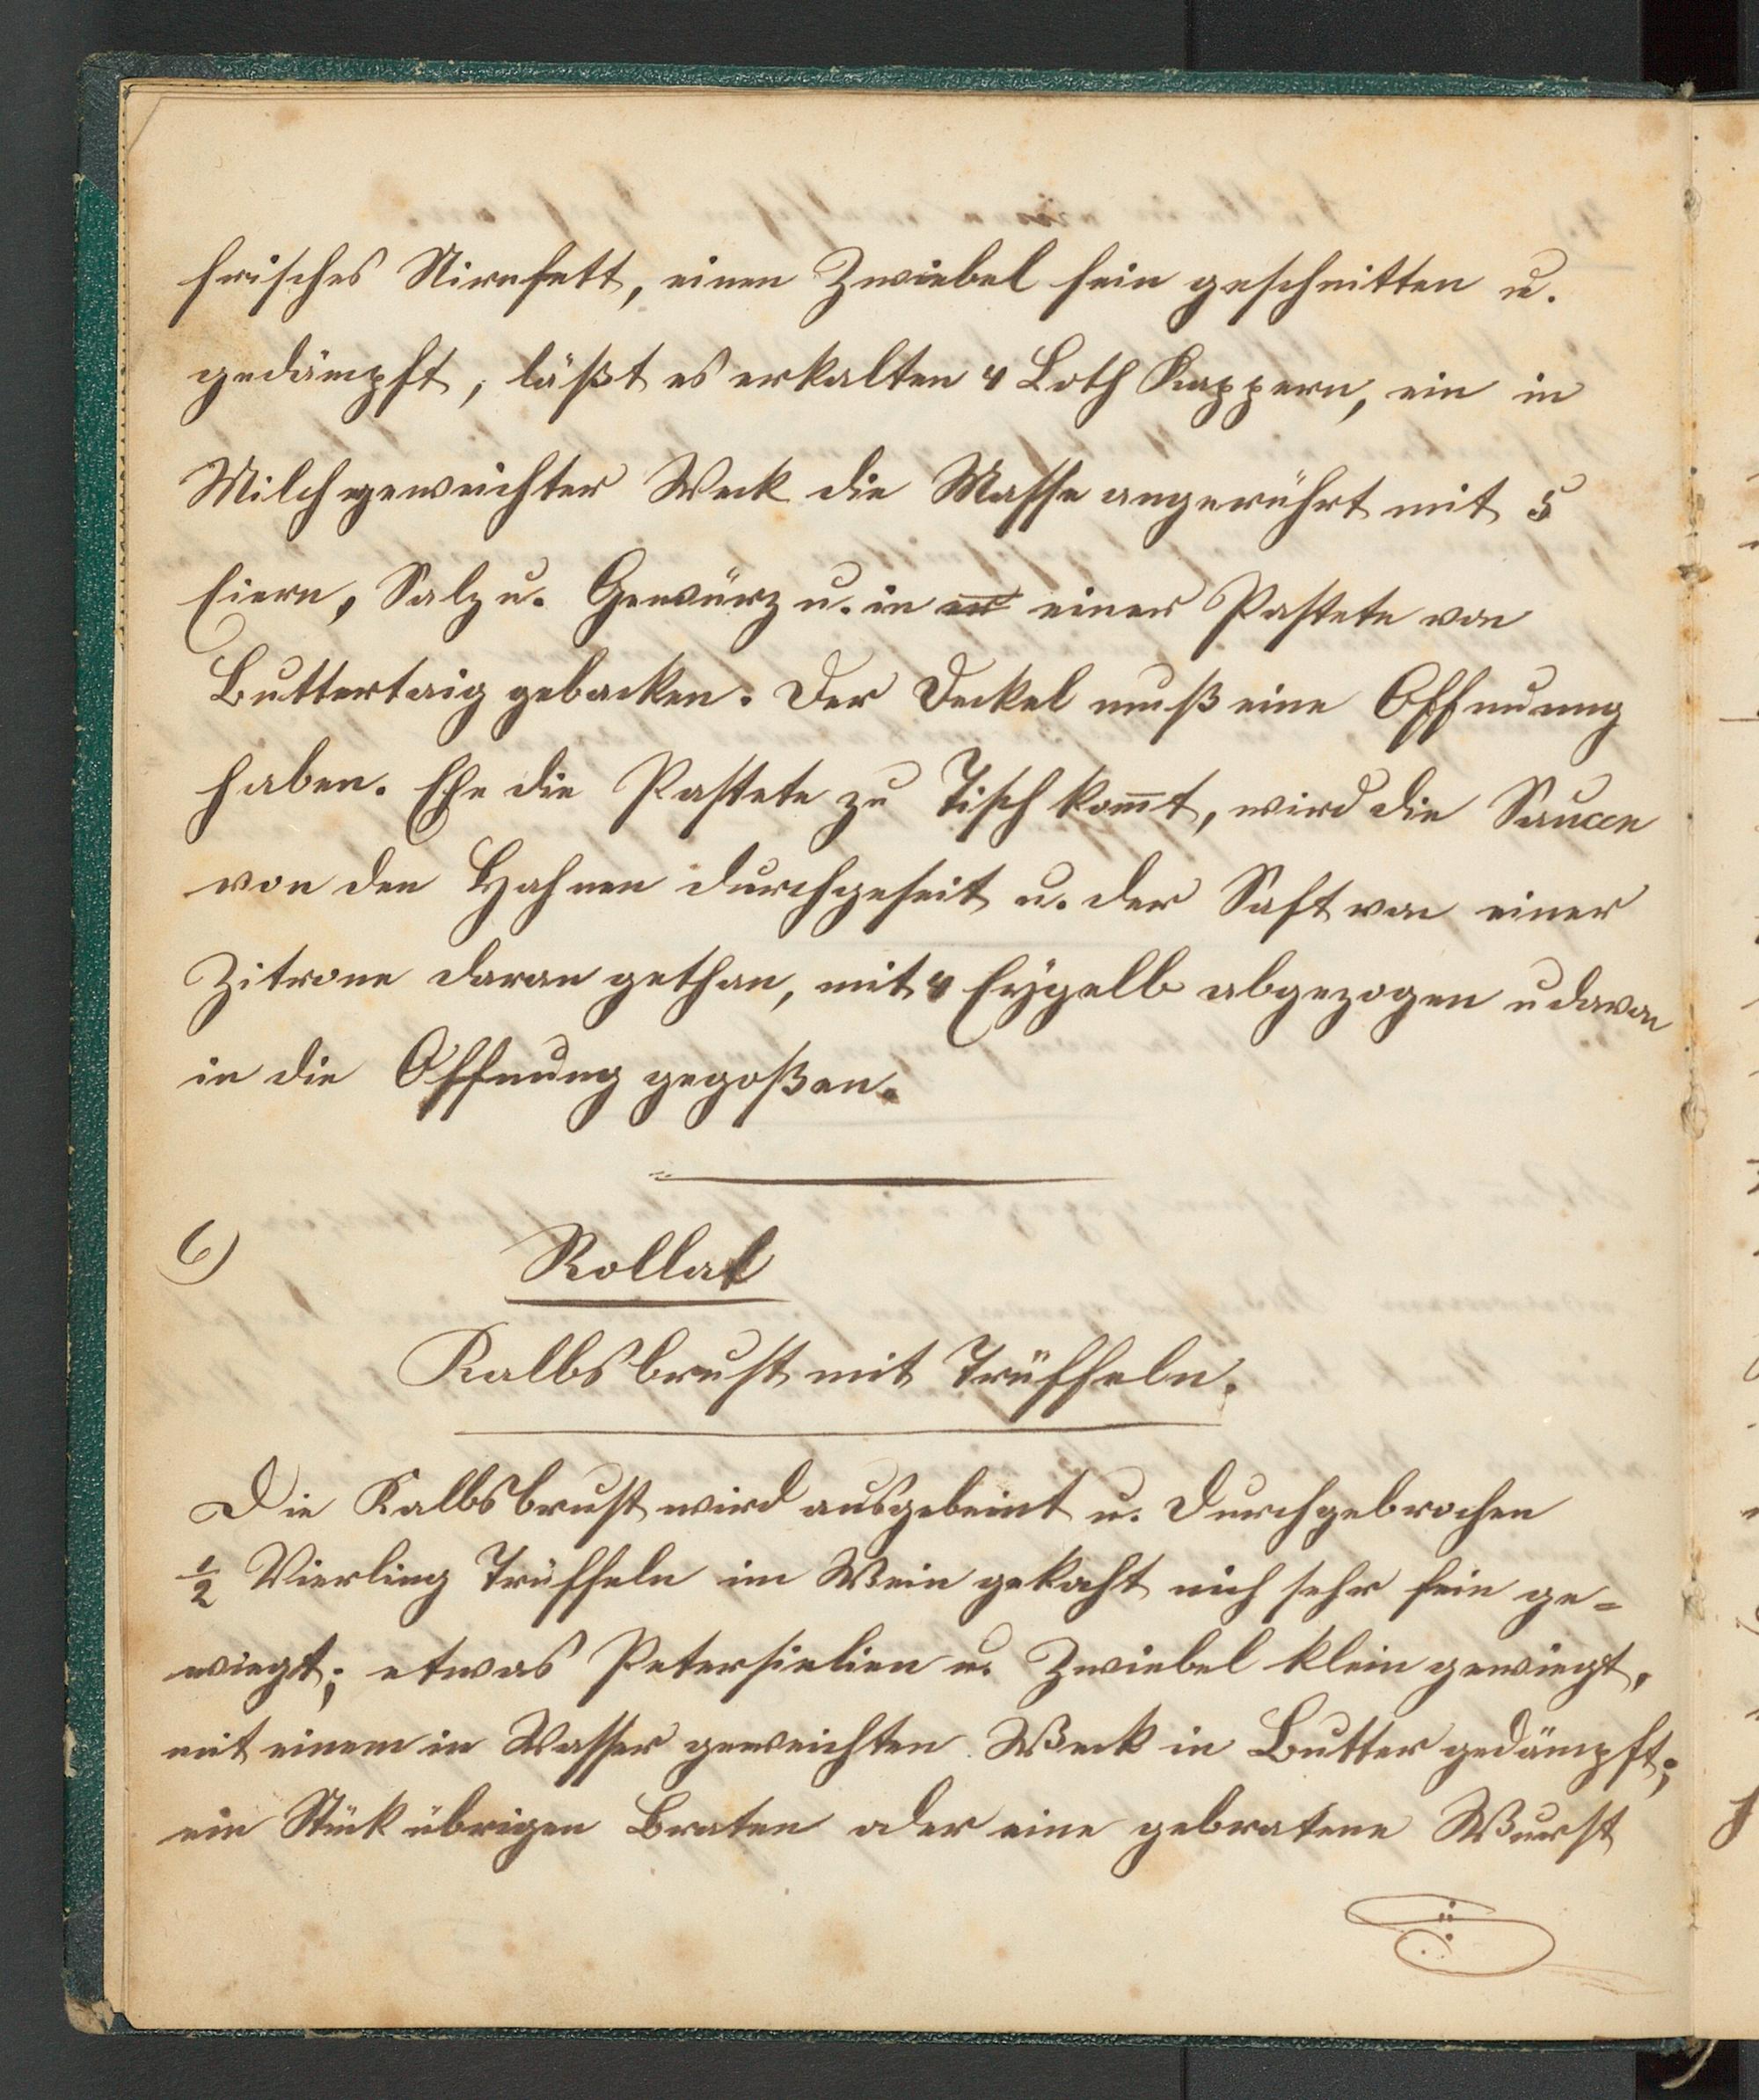 frisches Nirnfett, einen Zwiebel fein geschnitten u.
gedämpft, läßt es erkalten 4 Loth Kappern, ein in
Milch geweichter Weck die Masse angerührt mit 5
Eiern, Salz u. Gewürz u. in einer Pastete von
Buttertaig gebacken. Der Deckel muß eine Öffnuung
haben. Ehe die Pastete zu Tisch kom̄t, wird die Saucen
von den Hahnen durchgeseit u. der Saft von einer
Zitrone daran gethan, mit 4 Eÿgelb abgezogen u davon
in die Öffnung gegoßen.
6) Rollat
Kalbsbrust mit Trüffeln.
Die Kalbsbrust wird ausgebeint u. durchgebrochen
½ Vierling Trüffeln im Wein gekocht nich sehr fein ge=
wiegt; etwas Petersielien u. Zwiebel klein gewiegt,
mit einem in Wasser geweichten Weck in Butter gedämpft;
ein Stük übrigen Braten oder eine gebratene Wurst